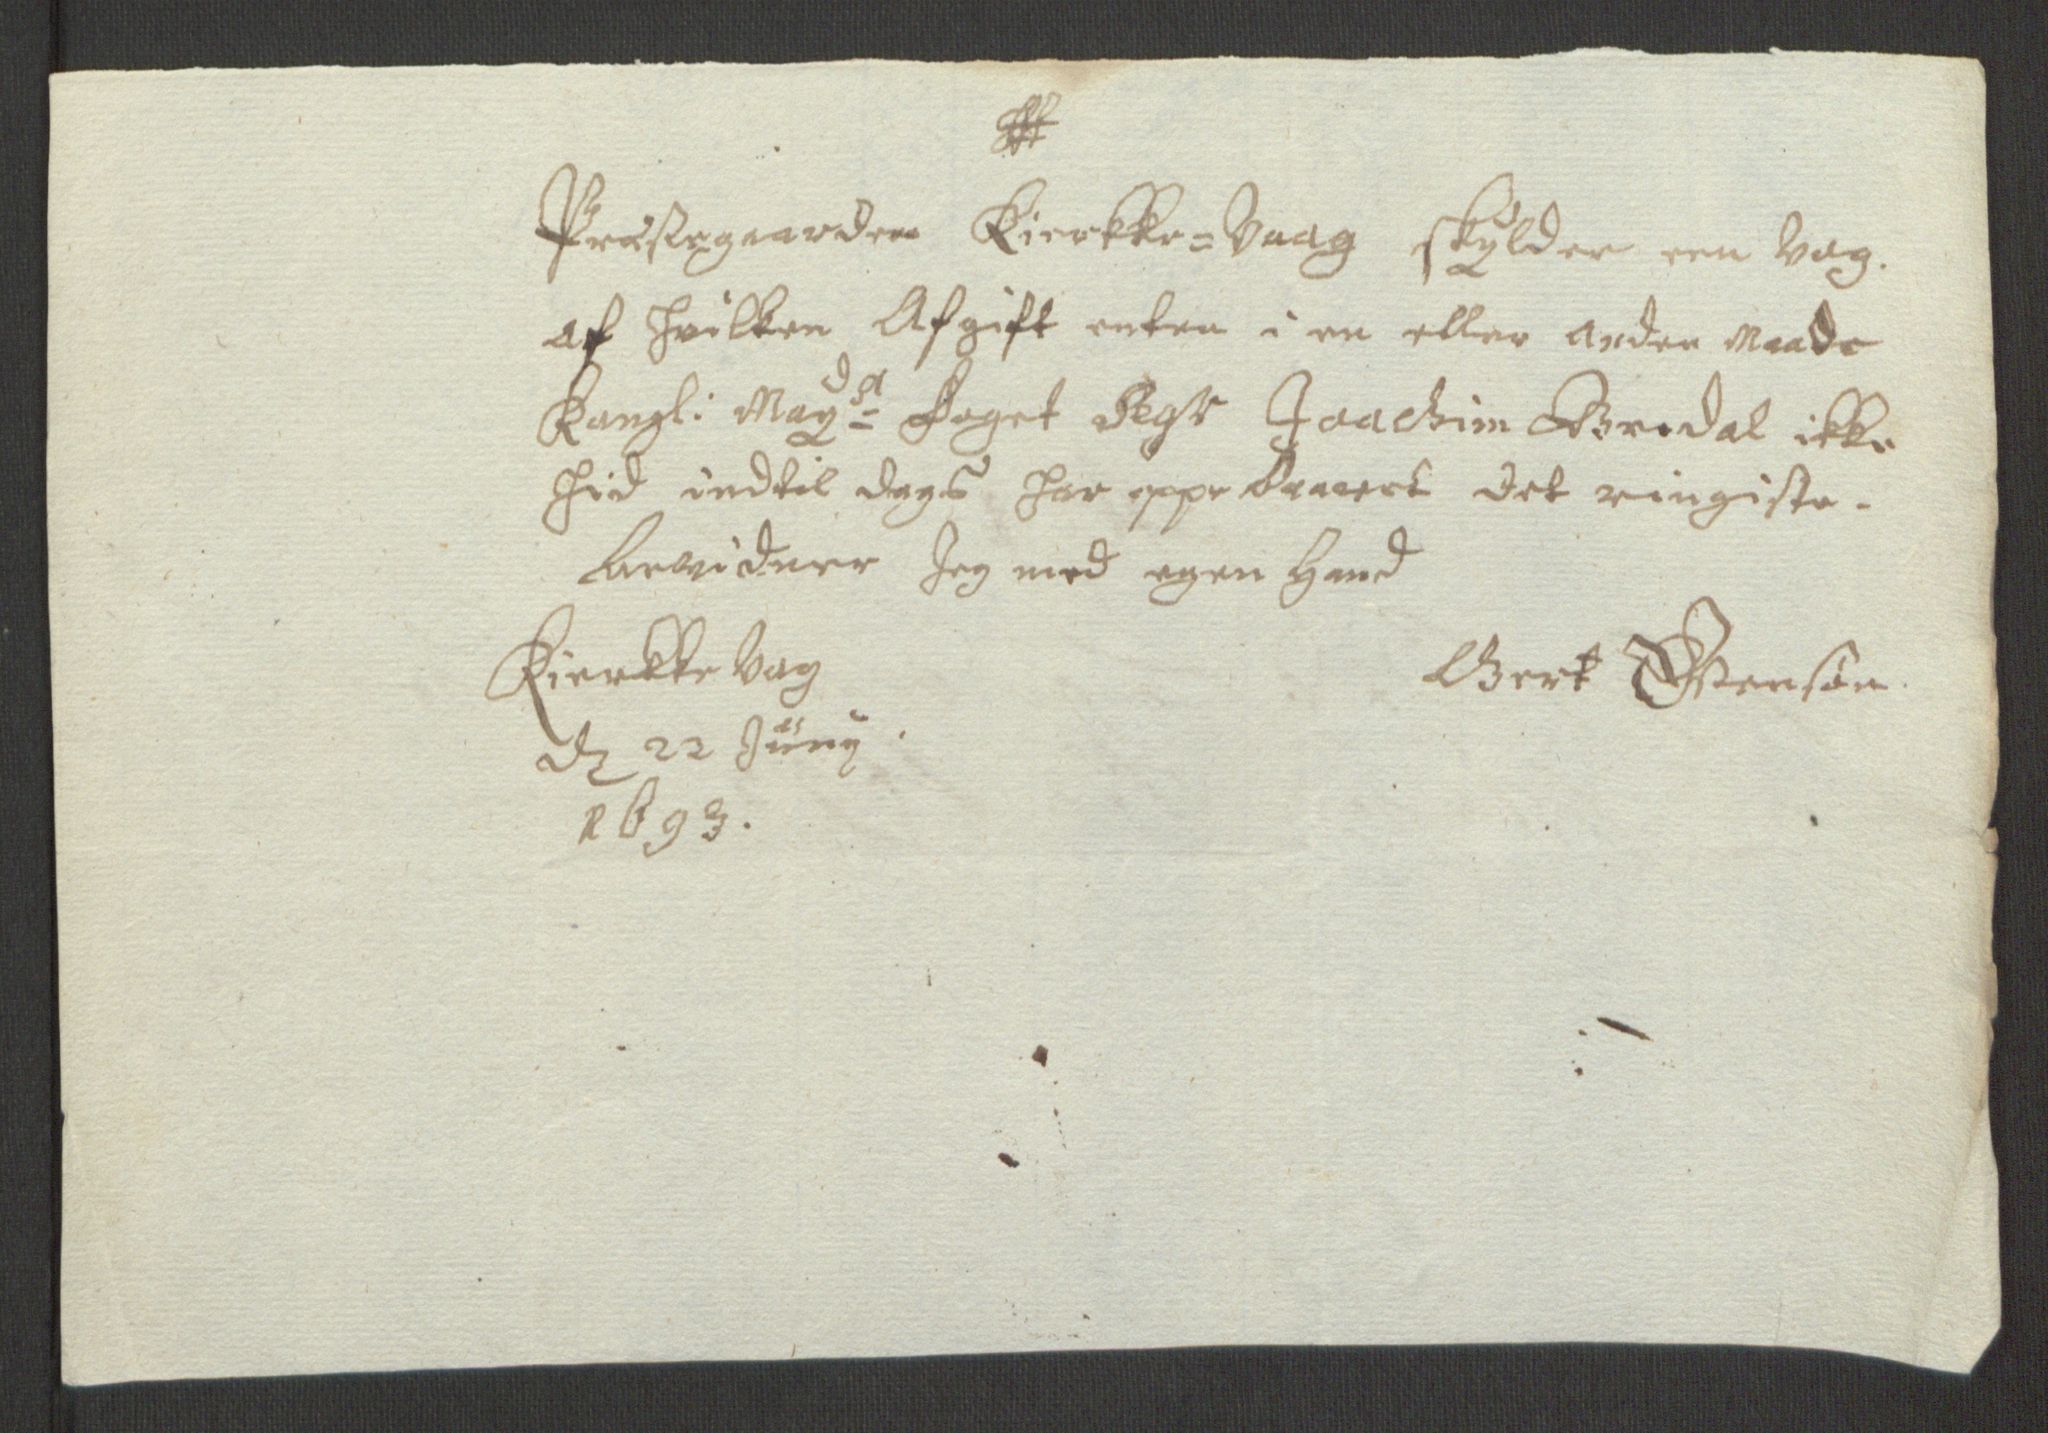 Præstegaarden Kierkke=Vaag skylder een Vog.
af hvilken Afgift enten i en eller anden Maade
Kongl: May.ts Foget Sgr Joachim Bredal ikke
hid indtil dags har oppe baaret det ringiste.
bewidner Jeg med egen Hand
Kierkke Vag
d 22 Juny.
1693.
Gert Ostensøn.